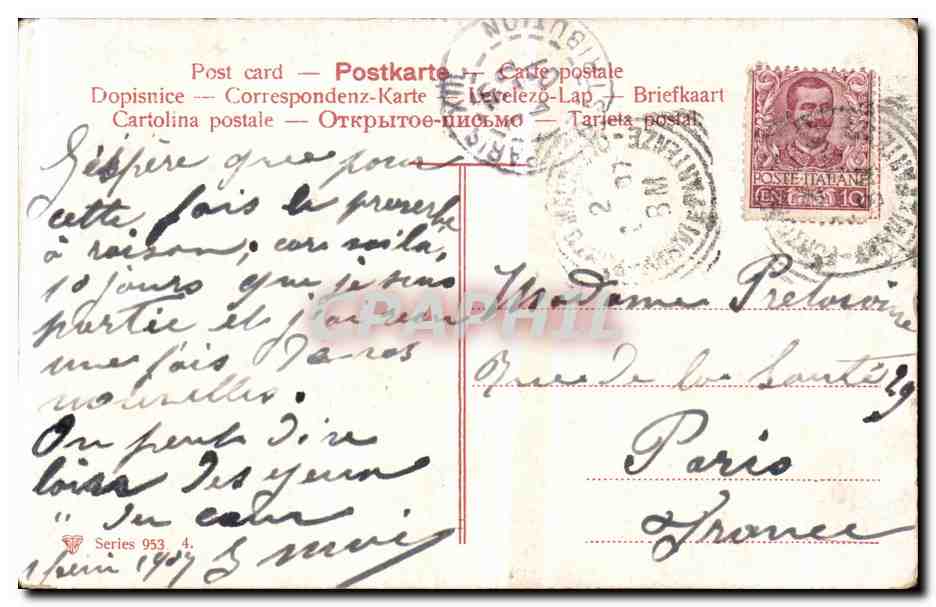 Post card — Postkarte — Carte postale
Dopisnice — Correspondenz-Karte — Levelező-Lap — Briefkaart
Cartolina postale — Открытое письмо — Tarjeta postal
J'espère que pour
cette fois le proverbe
a raison; car voilà,
10 jours que je suis
partie et j'ai reçu
une fois de vos
nouvelles.
On peut dire
loin des yeux
" du cœur
1 juin 1907
Series 953 4.
POSTE ITALIANE
CENT 10
PARIS
DISTRIBUTION
8 M
Madame
Rue de la Santé 29
Paris
France
CPAPHIL